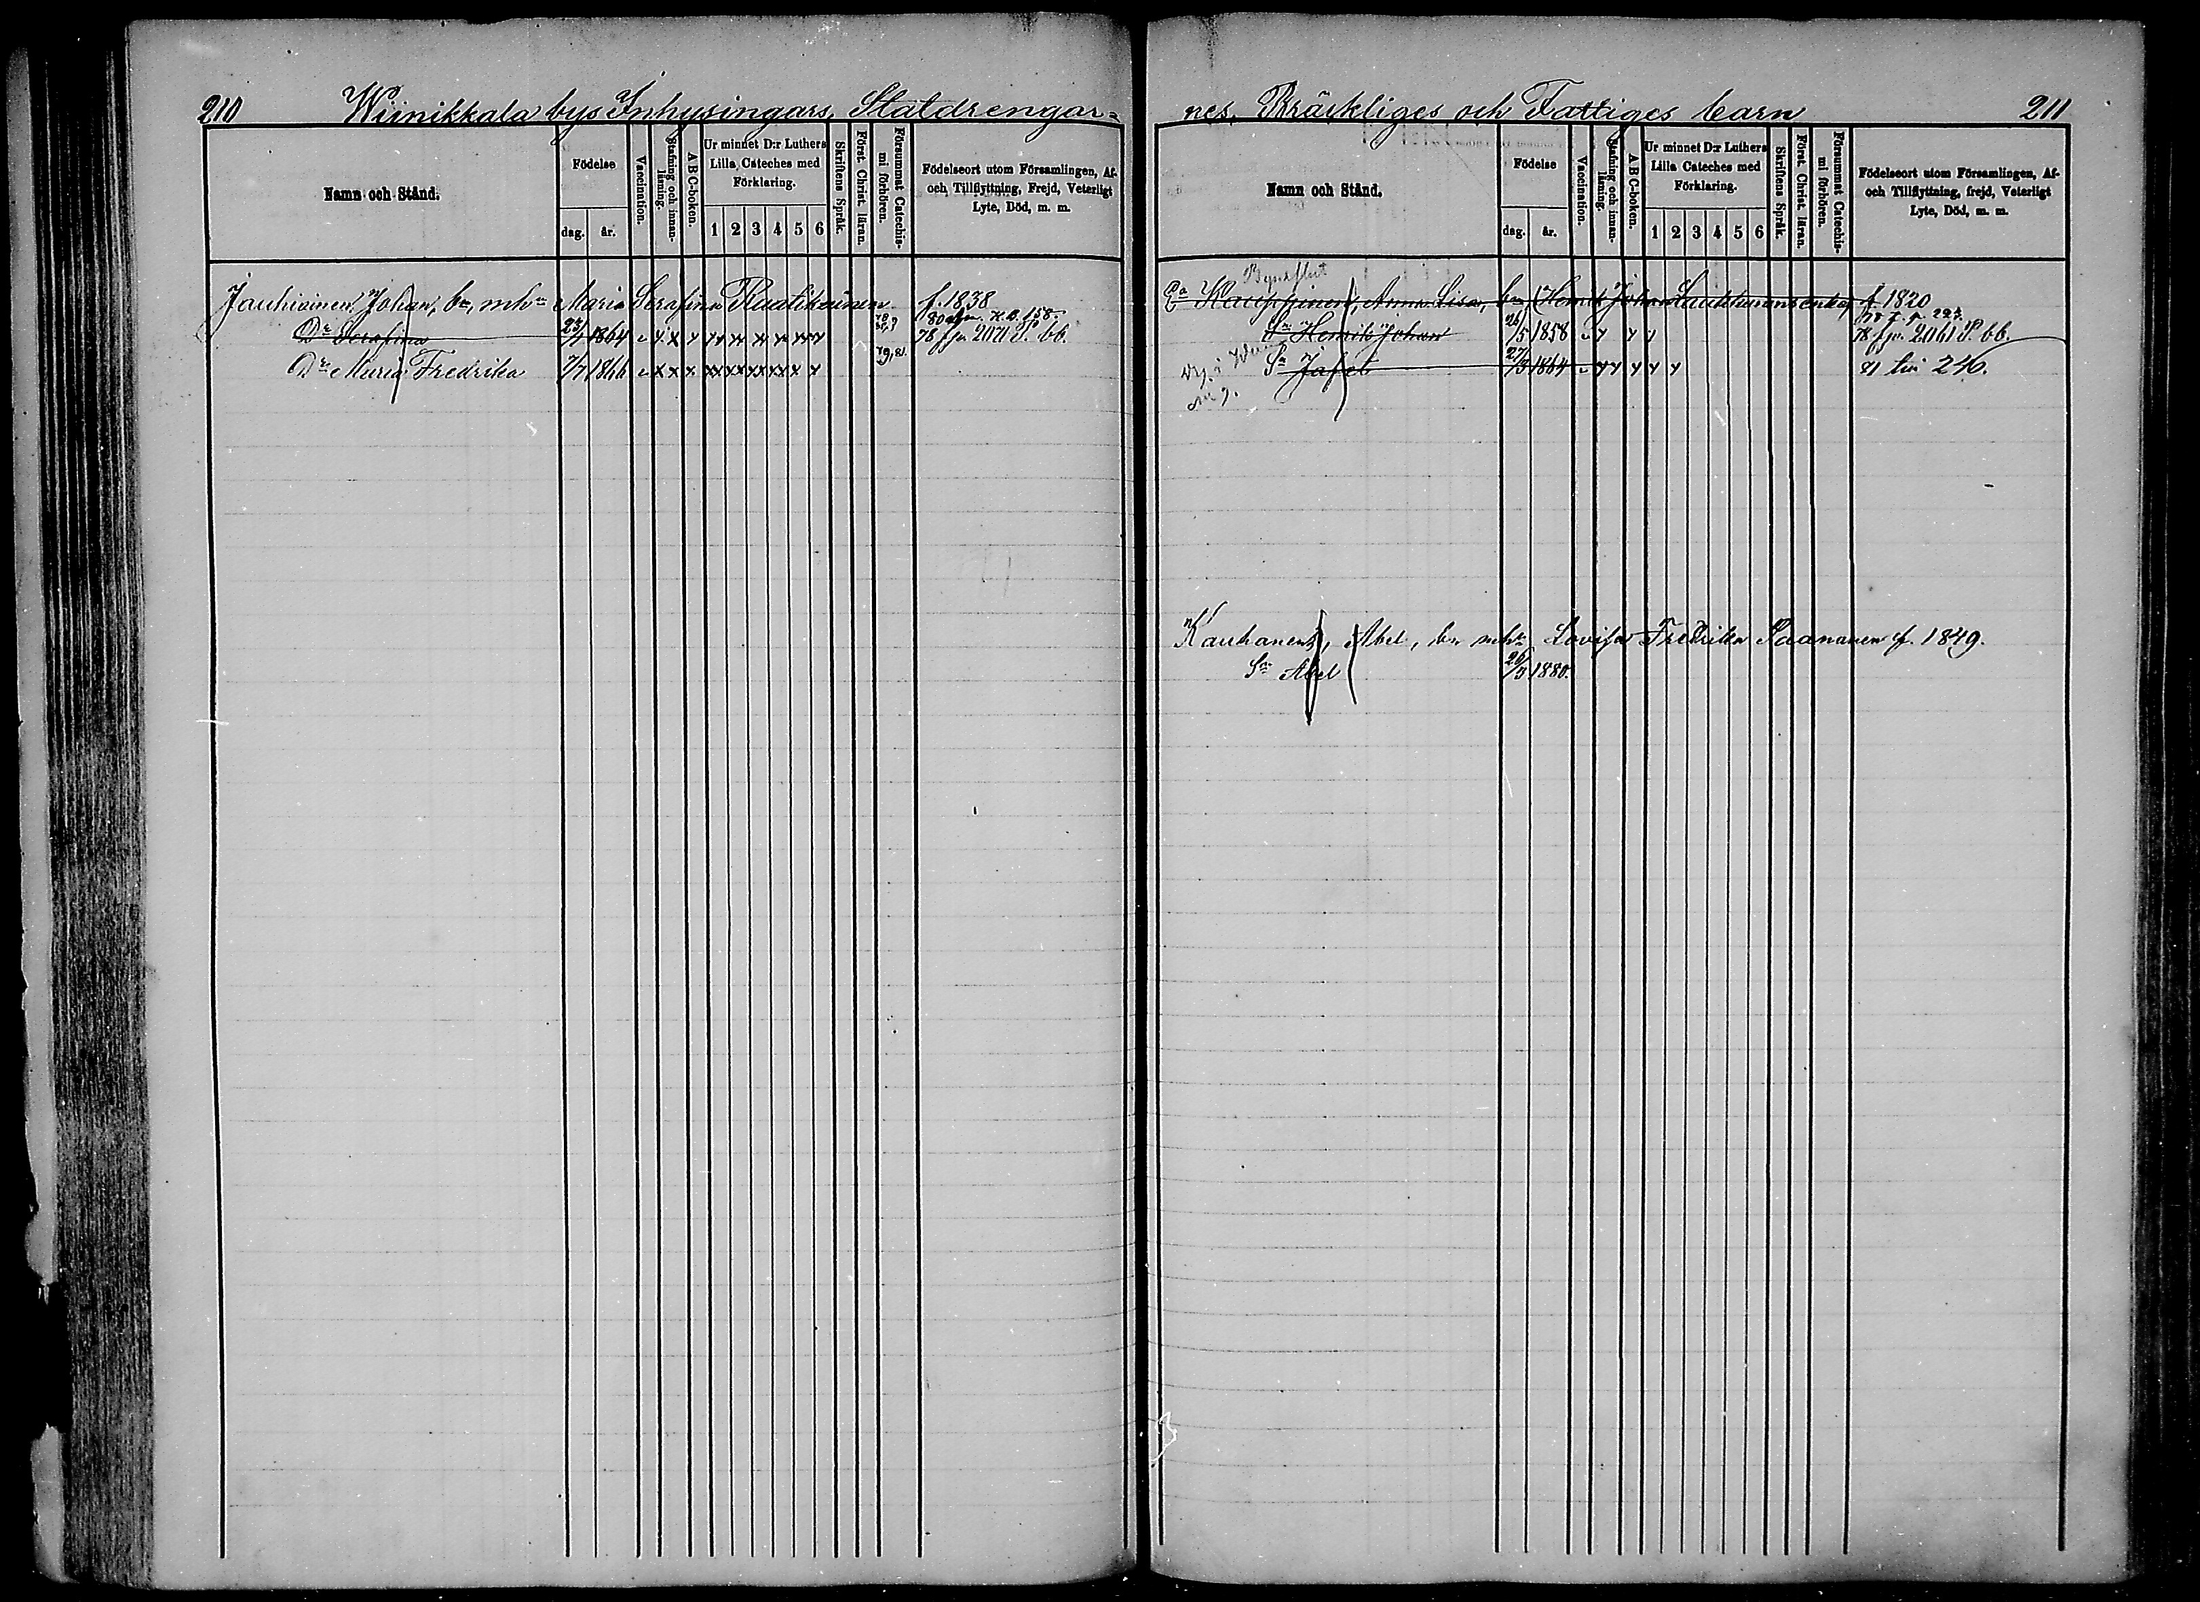 210 Wiinikkala bys Inhysingars, Statdrengar=
Namn och Stånd.
Födelse
dag. år.
Vaccination.
Stafning och innan-läsning.
A B C-boken.
Ur minnet D:r Luthers Lilla Cateches med Förklaring.
1 2 3 4 5 6
Skriftens Språk.
Först. Christ. läran.
Försummat Catechis-mi förhören.
Födelseort utom Församlingen, Af-
och Tillflyttning, Frejd, Veterligt
Lyte, Död, m. m.
Jauhiainen, Johan, bn, mhn Maria Serafina f. 1838
Dr Serafina 1864 78 2071 bb.
Dr Maria Fredrika 7/7 1866 79, 81.
nes, Bräckliges och Fattiges barn 211
Namn och Stånd.
Födelse
dag. år.
Vaccination.
Stafning och innan-läsning.
A B C-boken.
Ur minnet D:r Luthers Lilla Cateches med Förklaring.
1 2 3 4 5 6
Skriftens Språk.
Först. Christ. läran.
Försummat Catechis-mi förhören.
Födelseort utom Församlingen, Af-
och Tillflyttning, frejd, Veterligt
Lyte, Död, m. m.
Kauppinen, Anna Lisa, Henrik Johan f. 1820
Sn Henrik Johan 26/5 1858 78 2061 bb.
Sn Jafet 27/3 1864 81 tu 246.
Kauhanen, Abel, bn mhn Lovisa Fredrika Paananen f. 1849.
Sn Abel 26/3 1880.